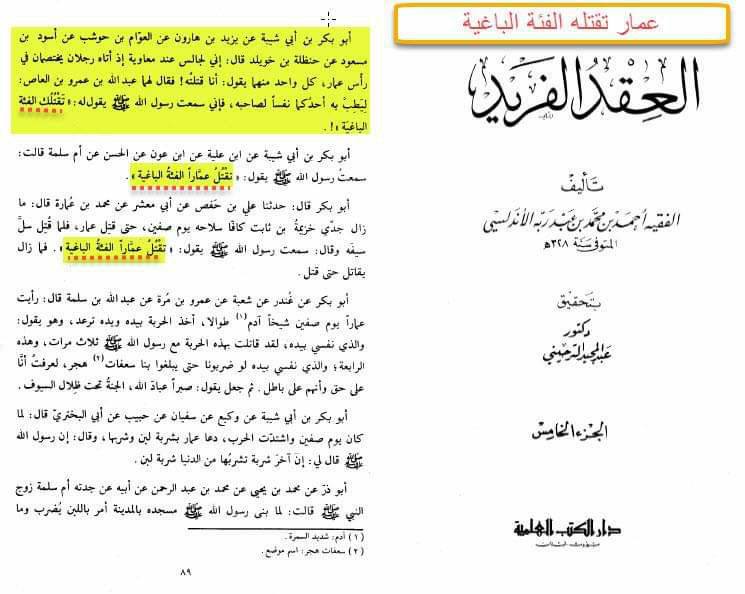 عمار تقتله الفئة الباغية
العقد الفريد
تأليف
الفقيه أحمد بن محمد بن عبد ربه الأندلسي
المتوفى سنة ٣٢٨ه
بتحقيق
دكتور
عبد المجيد الترحيني
الجزء الخامس
دار الكتب العلمية
بيروت - لبنان
أبو بكر بن أبي شيبة عن يزيد بن هارون عن العوّام بن حوشب عن أسود بن
مسعود عن حنظلة بن خويلد قال: إني لجالس عند معاوية إذ أتاه رجلان يختصمان في
رأس عمار، كل واحد منهما يقول: أنا قتلتُه! فقال لهما عبدالله بن عمرو بن العاص:
لِيَطِبْ به أحدُكما نفساً لصاحبه، فإني سمعت رسول الله ﷺ يقول له: « تَقْتُلك الفئة
الباغية »!.
أبو بكر بن أبي شيبة عن ابن علية عن ابن عون عن الحسن عن أم سلمة قالت:
سمعتُ رسول الله ﷺ يقول: « تقْتُل عمَّاراً الفئةُ الباغية » .
أبو بكر قال: حدثنا علي بن حَفص عن أبي معشر عن محمد بن عُمارة قال: ما
زال جدّي خزيمةُ بن ثابت كافًا سلاحه يوم صفين، حتى قتِل عمار، فلما قُتِل سلَّ
سيفَه وقال: سمعت رسول الله ﷺ يقول: « تَقْتُلُ عمَّاراً الفئةُ الباغية » . فما زال
يقاتل حتى قتل .
أبو بكر عن غُندر عن شعبة عن عمرو بن مُرة عن عبدالله بن سلمة قال: رأيت
عماراً يوم صفين شيخاً آدم(١) طوالا، أخذ الحربة بيده ويده ترعد، وهو يقول:
والذي نفسي بيده، لقد قاتلت بهذه الحربة مع رسول الله ﷺ ثلاث مرات، وهذه
الرابعة؛ والذي نفسي بيده لو ضربونا حتى يبلغوا بنا سعفات(٢) هجر، لعرفتُ أنّا
على حق وأنهم على باطل. ثم جعل يقول: صبراً عبادَ الله، الجنةُ تحت ظِلال السيوف .
أبو بكر بن أبي شيبة عن وكيع عن سفيان عن حبيب عن أبي البختريّ قال: لما
كان يوم صفين واشتدّت الحرب، دعا عمار بشربة لبن وشربها، وقال: إن رسول الله
ﷺ قال لي: إنّ آخرَ شربة تشربُها من الدنيا شربة لبن .
أبو ذرّ عن محمد بن يحيى عن محمد بن عبد الرحمن عن أبيه عن جدته أم سلمة زوج
النبي ﷺ قالت: لما بنى رسول الله ﷺ مسجده بالمدينة أمر باللبن يُضرب وما
(١) آدم: شديد السمرة .
(٢) سعفات هجر: اسم موضع .
٨٩